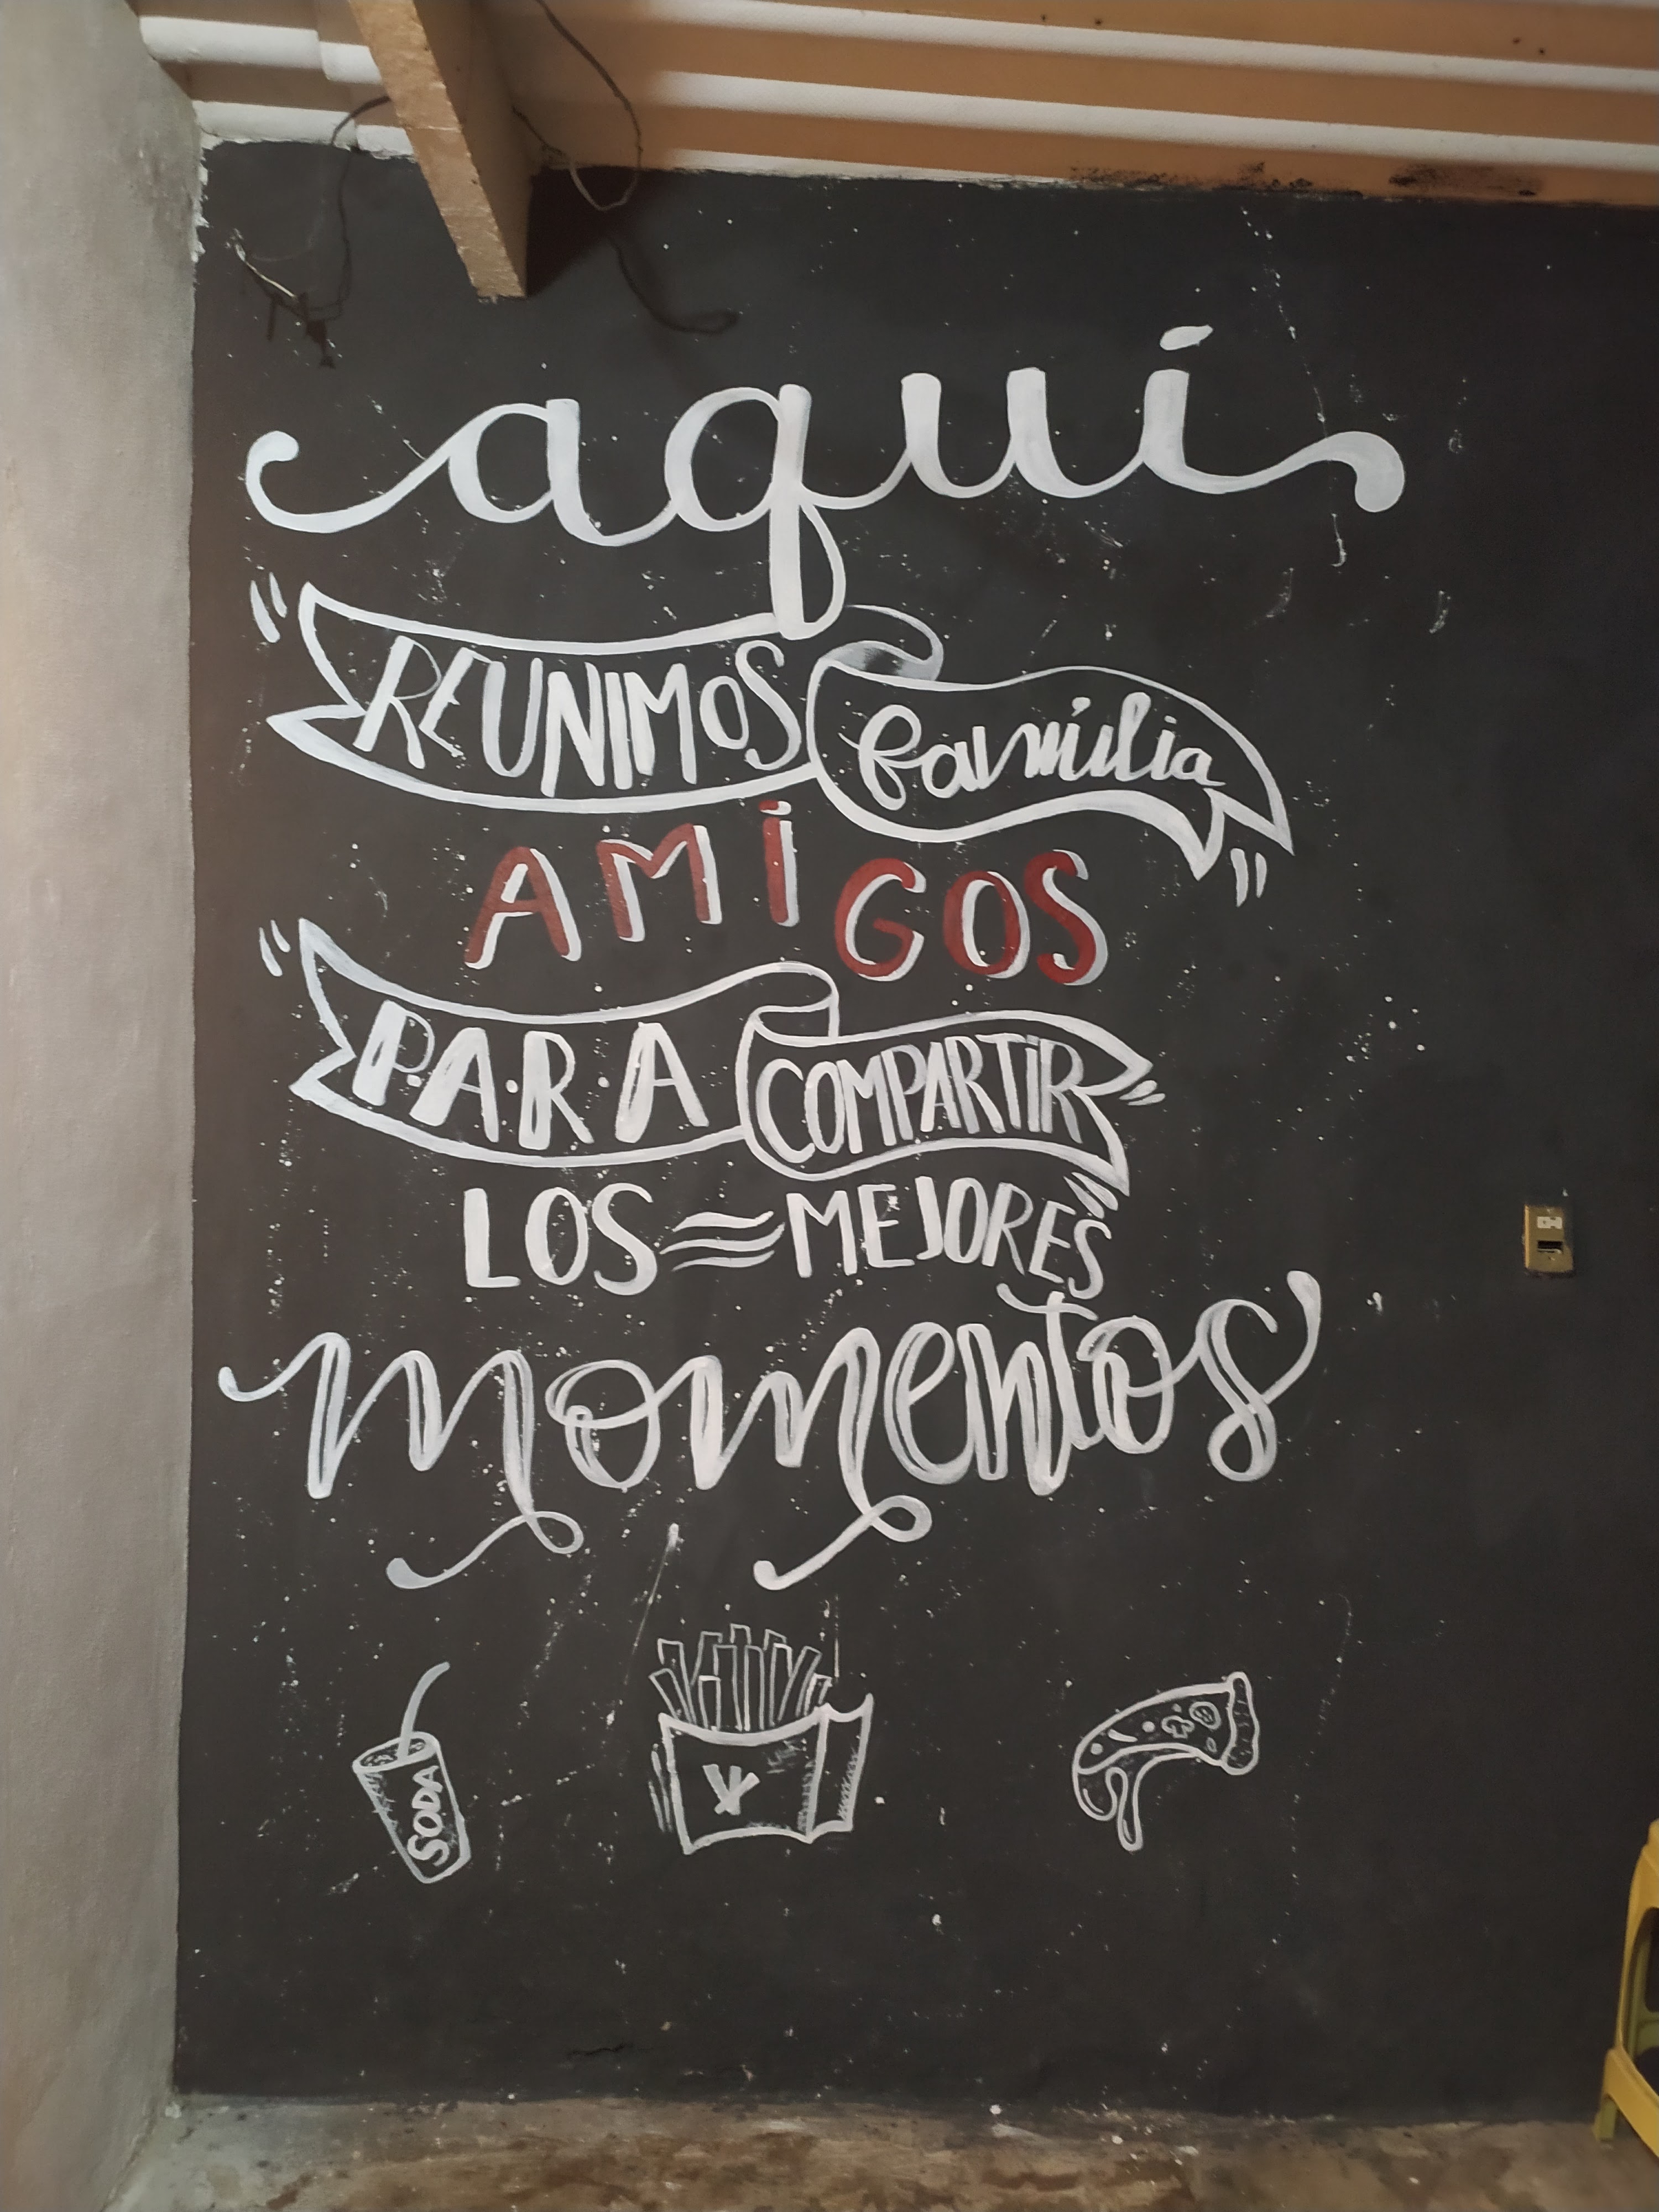 aquí
REUNIMOS familia
AMiGOS
P.A.R.A COMPARTiR
LOS MEJORES
momentos
SODA